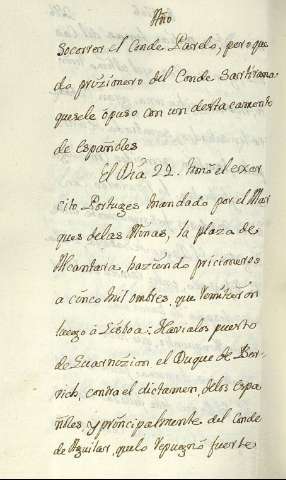 Año
Socorrer el Conde Parelo, pero que
do prizionero del Conde Sartirana
quesele ôpuso con un destacamento
de españoles
El Dia 22. tomô el exer
cito Portuges mandado por el Mar
ques delas Minas, la plaza de
Alcantara, haziendo pricioneros
a cinco mil ombres, que remitieron
luego â Lisboa: Havialos puerto
de Guarnizion el Duque de Ber-
vich, contra el dictamen, delos espa
ñoles, y principalmente del Conde
de Aguilar, quelo repugnô fuerte